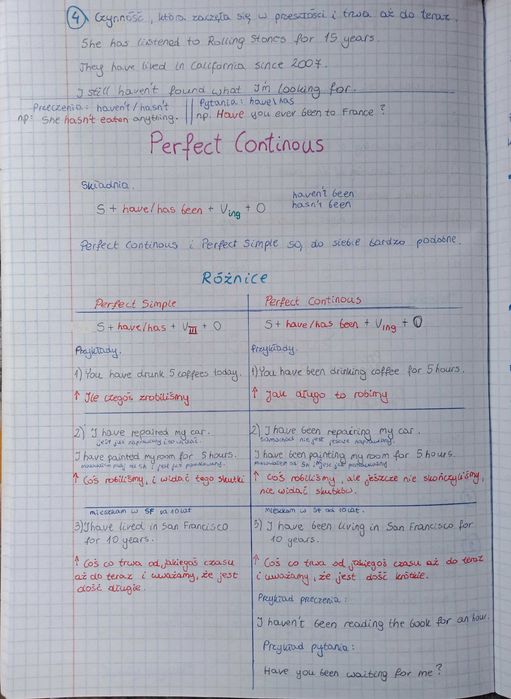 ④ Czynność, która zaczęła się w przeszłości i trwa aż do teraz.
She has listened to Rolling Stones for 15 years.
They have lived in California since 2007.
I still haven't found what I'm looking for.
Przeczenia: haven't/hasn't
np: She hasn't eaten anything.
Pytania: have/has
np. Have you ever been to France?
Perfect Continous
Składnia.
S + have/has been + Ving + O
haven't been
hasn't been
Perfect Continous i Perfect Simple są do siebie bardzo podobne.
Różnice
Perfect Simple
S + have/has + VIII + O
Przykłady.
1) You have drunk 5 coffees today.
↑ Ile czegoś zrobiliśmy
2) I have repaited my car.
jest już naprawiony i to widać.
I have painted my room for 5 hours.
↑ Coś robiliśmy, i widać tego skutki
mieszkam w SF od 10 lat
3) I have lived in San Francisco
for 10 years.
↑ Coś co trwa od jakiegoś czasu
aż do teraz i uważamy, że jest
dość długie.
Perfect Continous
S + have/has been + Ving + O
Przykłady.
1) You have been drinking coffee for 5 hours.
↑ Jak długo to robimy
2) I have been repairing my car.
samochód nie jest jeszcze naprawiony.
I have been painting my room for 5 hours.
↑ Coś robiliśmy, ale jeszcze nie skończyliśmy,
nie widać skutków.
mieszkam w SF od 10 lat.
3) I have been living in San Francisco for
10 years.
↑ Coś co trwa od jakiegoś czasu aż do teraz
i uważamy, że jest dość krótkie.
Przykład przeczenia:
I haven't been reading the book for an hour.
Przykład pytania:
Have you been waiting for me?